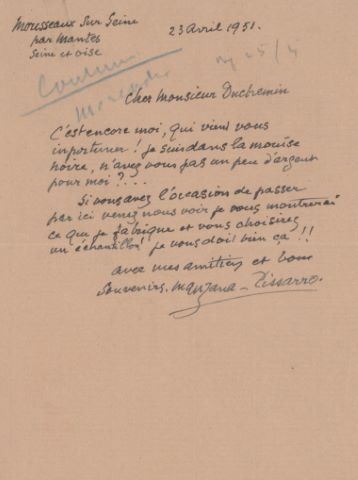 Mousseaux sur Seine
par Mantes
Seine et oise
23 avril 1951.
25/4
Cher Monsieur Duchemin
C'est encore moi, qui viens vous
importuner! je suis dans la mouise
noire, n'avez vous pas un peu d'argent
pour moi?....
Si vous avez l'occasion de passer
par ici venez nous voir je vous montrerai
ce que je fabrique et vous choisirez
un échantillon! je vous dois bien ça!!
avec mes amitiés et bons
souvenirs. Manzana-Pissarro.